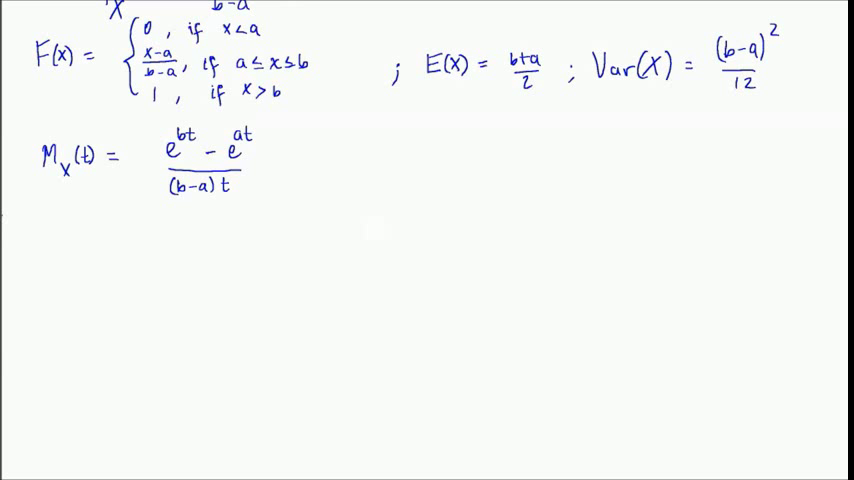 X b-a
F(x) = { 0 , if x<a
x-a/b-a , if a≤x≤b
1 , if x>b
; E(X) = b+a/2 ; Var(X) = (b-a)²/12
M_X(t) = e^bt - e^at / (b-a)t